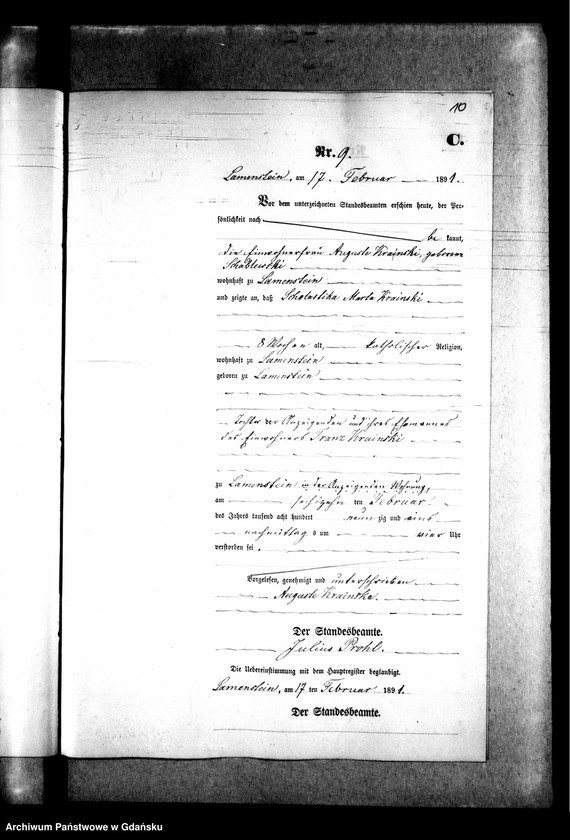 10
C.
Nr. 9.
Lamenstein, am 17. Februar 1891.
Vor dem unterzeichneten Standesbeamten erschien heute, der Per-
sönlichkeit nach
be kannt,
die Einwohnerfrau Auguste Krainski, geborene
Schablewski
wohnhaft zu Lamenstein
und zeigte an, daß Scholastika Marta Krainski
8 Wochen alt, katholischer Religion,
wohnhaft zu Lamenstein
geboren zu Lamenstein
Tochter der Anzeigenden und ihres Ehemannes
des Einwohners Franz Krainski
zu Lamenstein in der Anzeigenden Wohnung,
am sechszehn ten Februar
des Jahres tausend acht hundert neun zig und eins
nachmittag s um vier Uhr
verstorben sei.
Vorgelesen, genehmigt und unterschrieben
Auguste Krainska.
Der Standesbeamte.
Julius Prohl.
Die Uebereinstimmung mit dem Hauptregister beglaubigt.
Lamenstein, am 17 ten Februar 1891.
Der Standesbeamte.
Archiwum Państwowe w Gdańsku